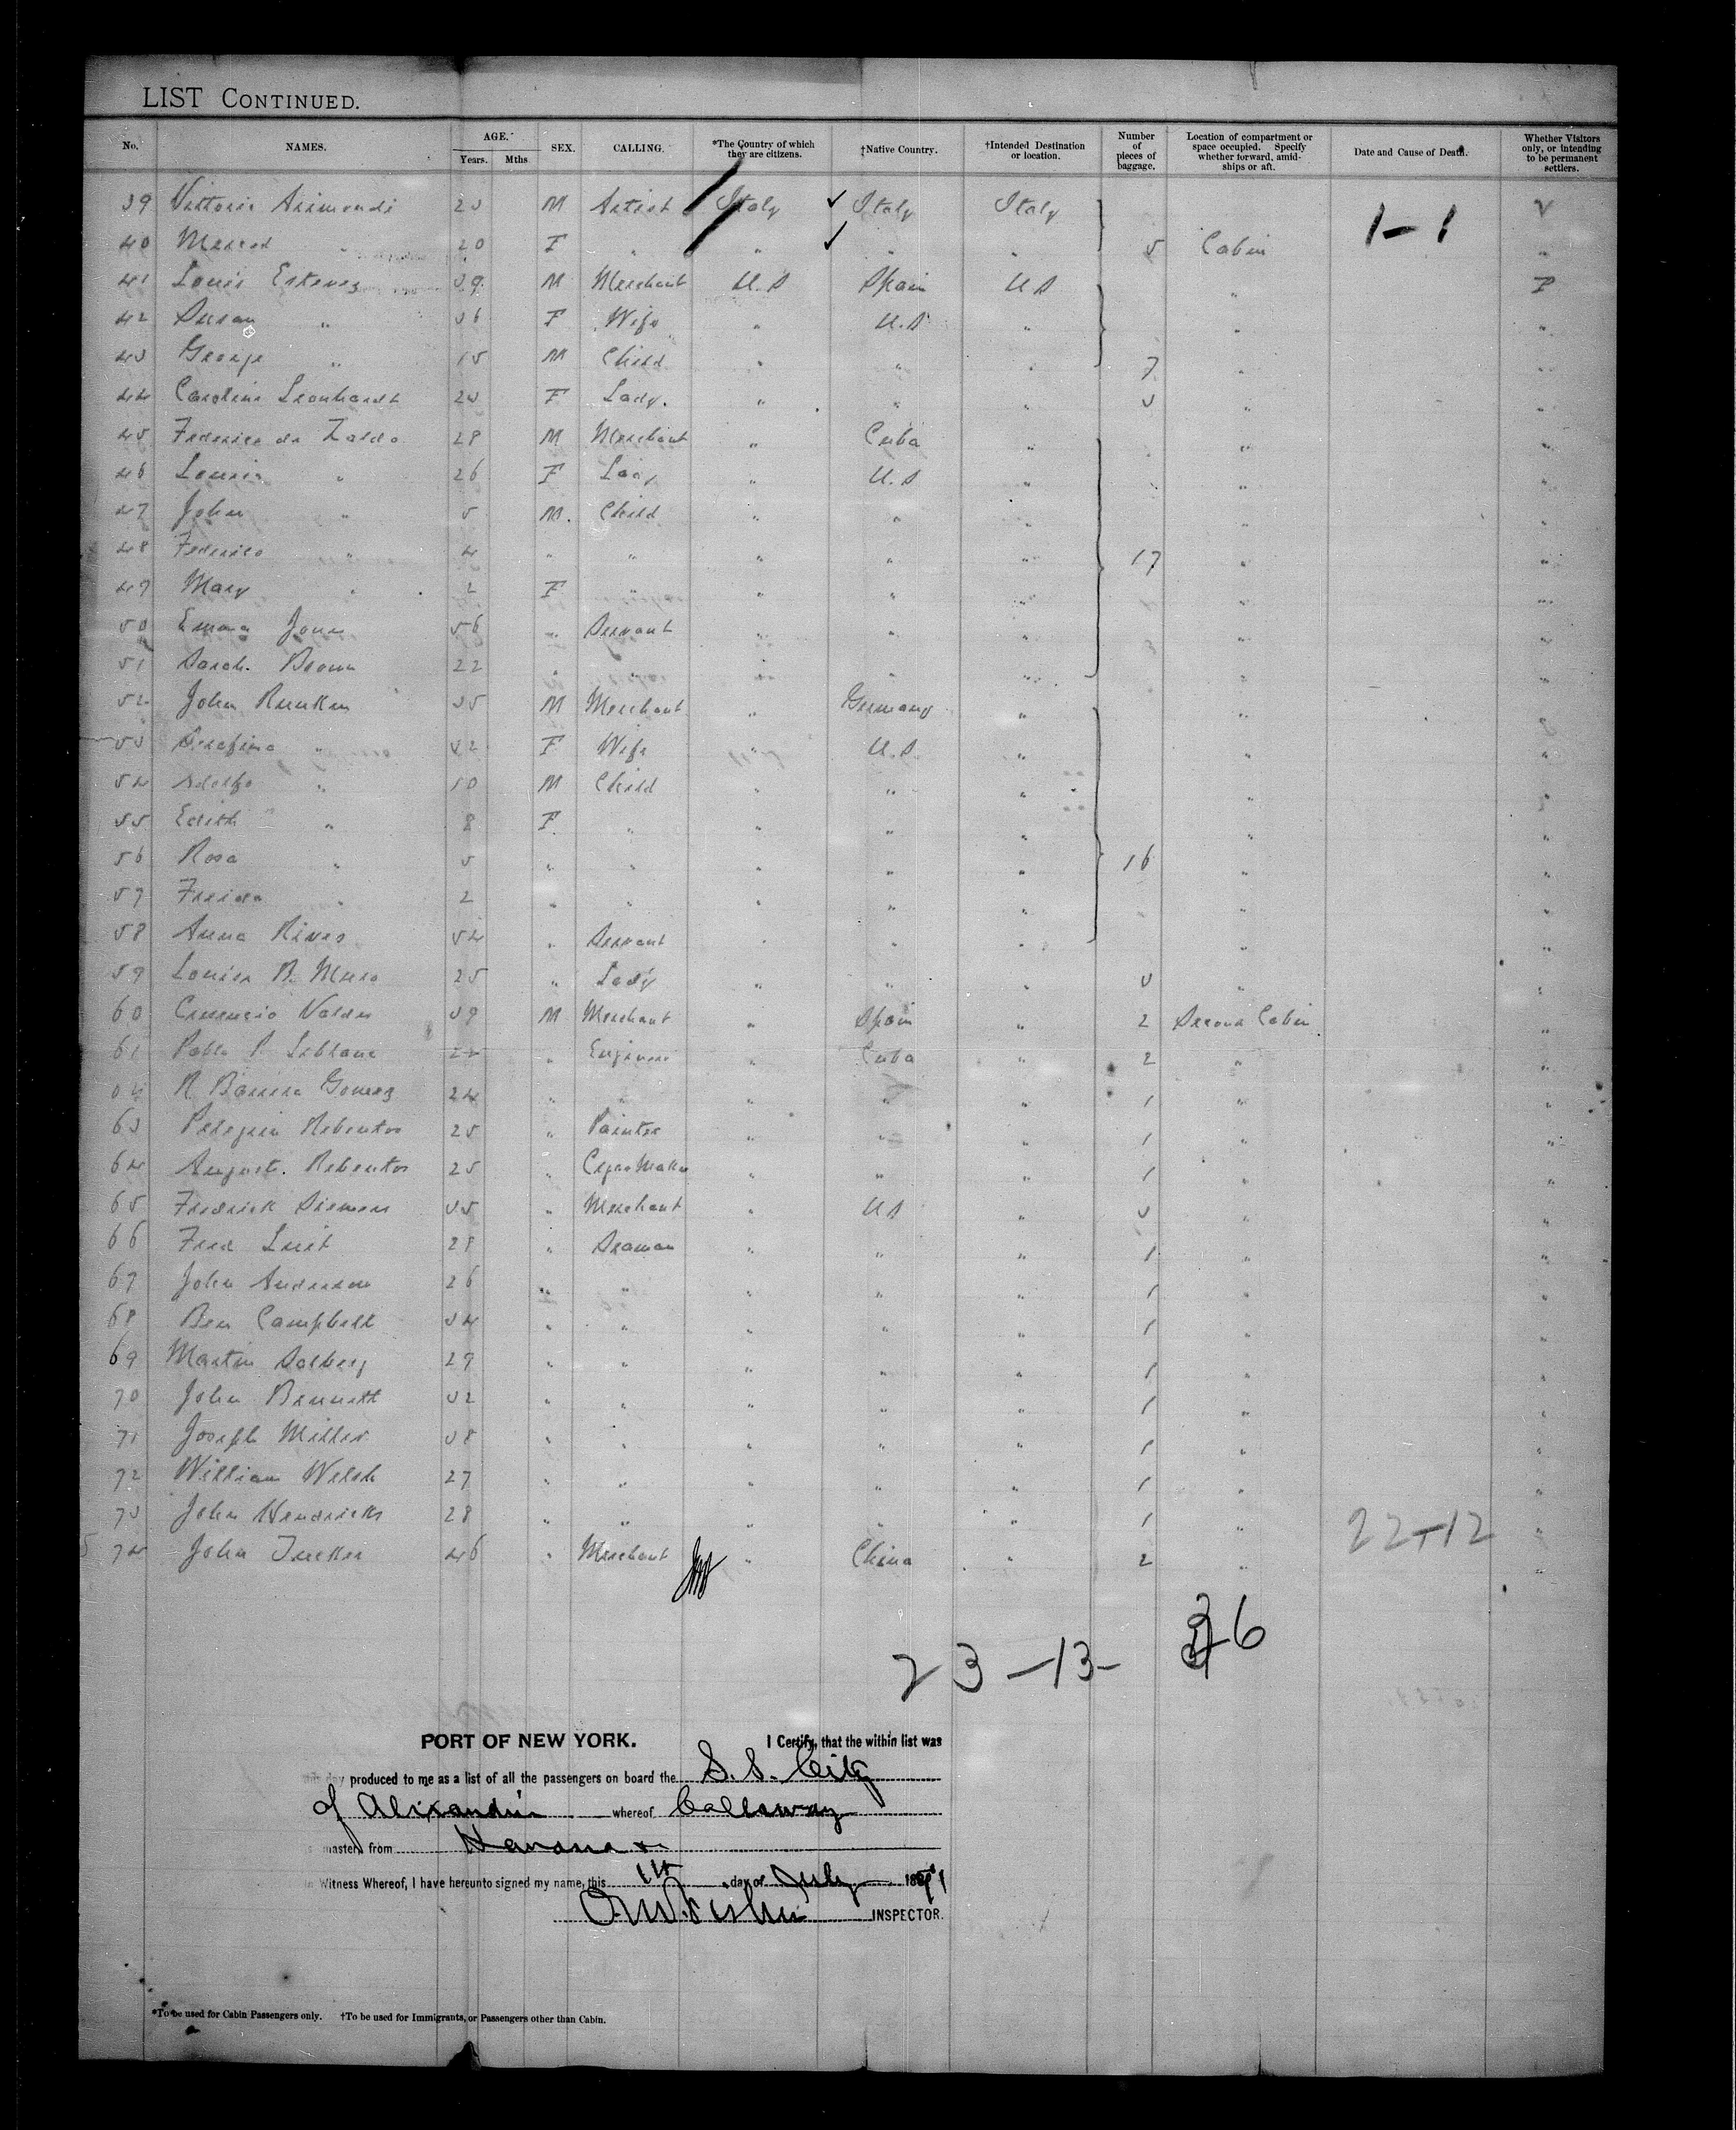 LIST CONTINUED.
No. NAMES. AGE. Years. Mths. SEX. CALLING. *The Country of which they are citizens. †Native Country. †Intended Destination or location. Number of pieces of baggage. Location of compartment or space occupied. Specify whether forward, amidships or aft. Date and Cause of Death. Whether Visitors only, or intending to be permanent settlers.
39 Vittorio Arimondi 23 M Artist Italy ✓ Italy Italy V
40 " 20 F " " ✓ " " 5 Cabin 1-1 "
41 Louis Estevez 39 M Merchant U.S Spain U S " P
42 Susan " 36 F Wife " U.S " " "
43 George " 15 M Child " " " 7 " "
44 Caroline Leonhardt 23 F Lady. " " " 3 " "
45 Federico de Zaldo 28 M Merchant " Cuba " " "
46 Louisa " 26 F Lady " U.S " " "
47 John " 5 M. Child " " " " "
48 Federico " 4 " " " " " 17 " "
49 Mary " 2 F " " " " " "
50 Emma Jones 56 " Servant " " " " "
51 Sarah. Brown 22 " " " " " " "
52 John Runken 35 M Merchant " Germany " " "
53 Serafina " 32 F Wife " U.S. " " "
54 Adolfo " 10 M Child " " " " "
55 Edith " 8 F. " " " " " "
56 Rosa " 5 " " " " " 16 " "
57 Freida " 2 " " " " " " "
58 Anna Rives 54 " Servant " " " " "
59 Louisa B. 25 " Lady " " " 3 " "
60 Valdes 39 M Merchant " Spain " 2 Second Cabin "
61 Pablo P. Leblanc 22 " Engineer " Cuba " 2 " "
R Gomez 24 " " " " " 1 " "
63 Pelegrin Rebentos 25 " Painter " " " 1 " "
64 August. Rebentos 25 " Cigar Maker " " " 1 " "
65 Fredrick Siemens 35 " Merchant " U S " 3 " "
66 Fred 28 " Seaman " " " 1 " "
67 John Anderson 26 " " " " " 1 " "
68 Ben Campbell 34 " " " " " 1 " "
69 Martin Solberg 29 " " " " " 1 " "
70 John Bennett 32 " " " " " 1 " "
71 Joseph Miller 38 " " " " " 1 " "
72 William Welsh 27 " " " " " 1 " "
73 John Hendricks 28 " " " " " 1 " 22-12 "
74 John Tucker 46 " Merchant " China " 2 " "
23-13- 36
PORT OF NEW YORK. I Certify, that the within list was
this day produced to me as a list of all the passengers on board the S.S. City
of Alexandria whereof Calloway
is master, from Havana
In Witness Whereof, I have hereunto signed my name, this 1st day of July 1891
INSPECTOR.
*To be used for Cabin Passengers only. †To be used for Immigrants, or Passengers other than Cabin.